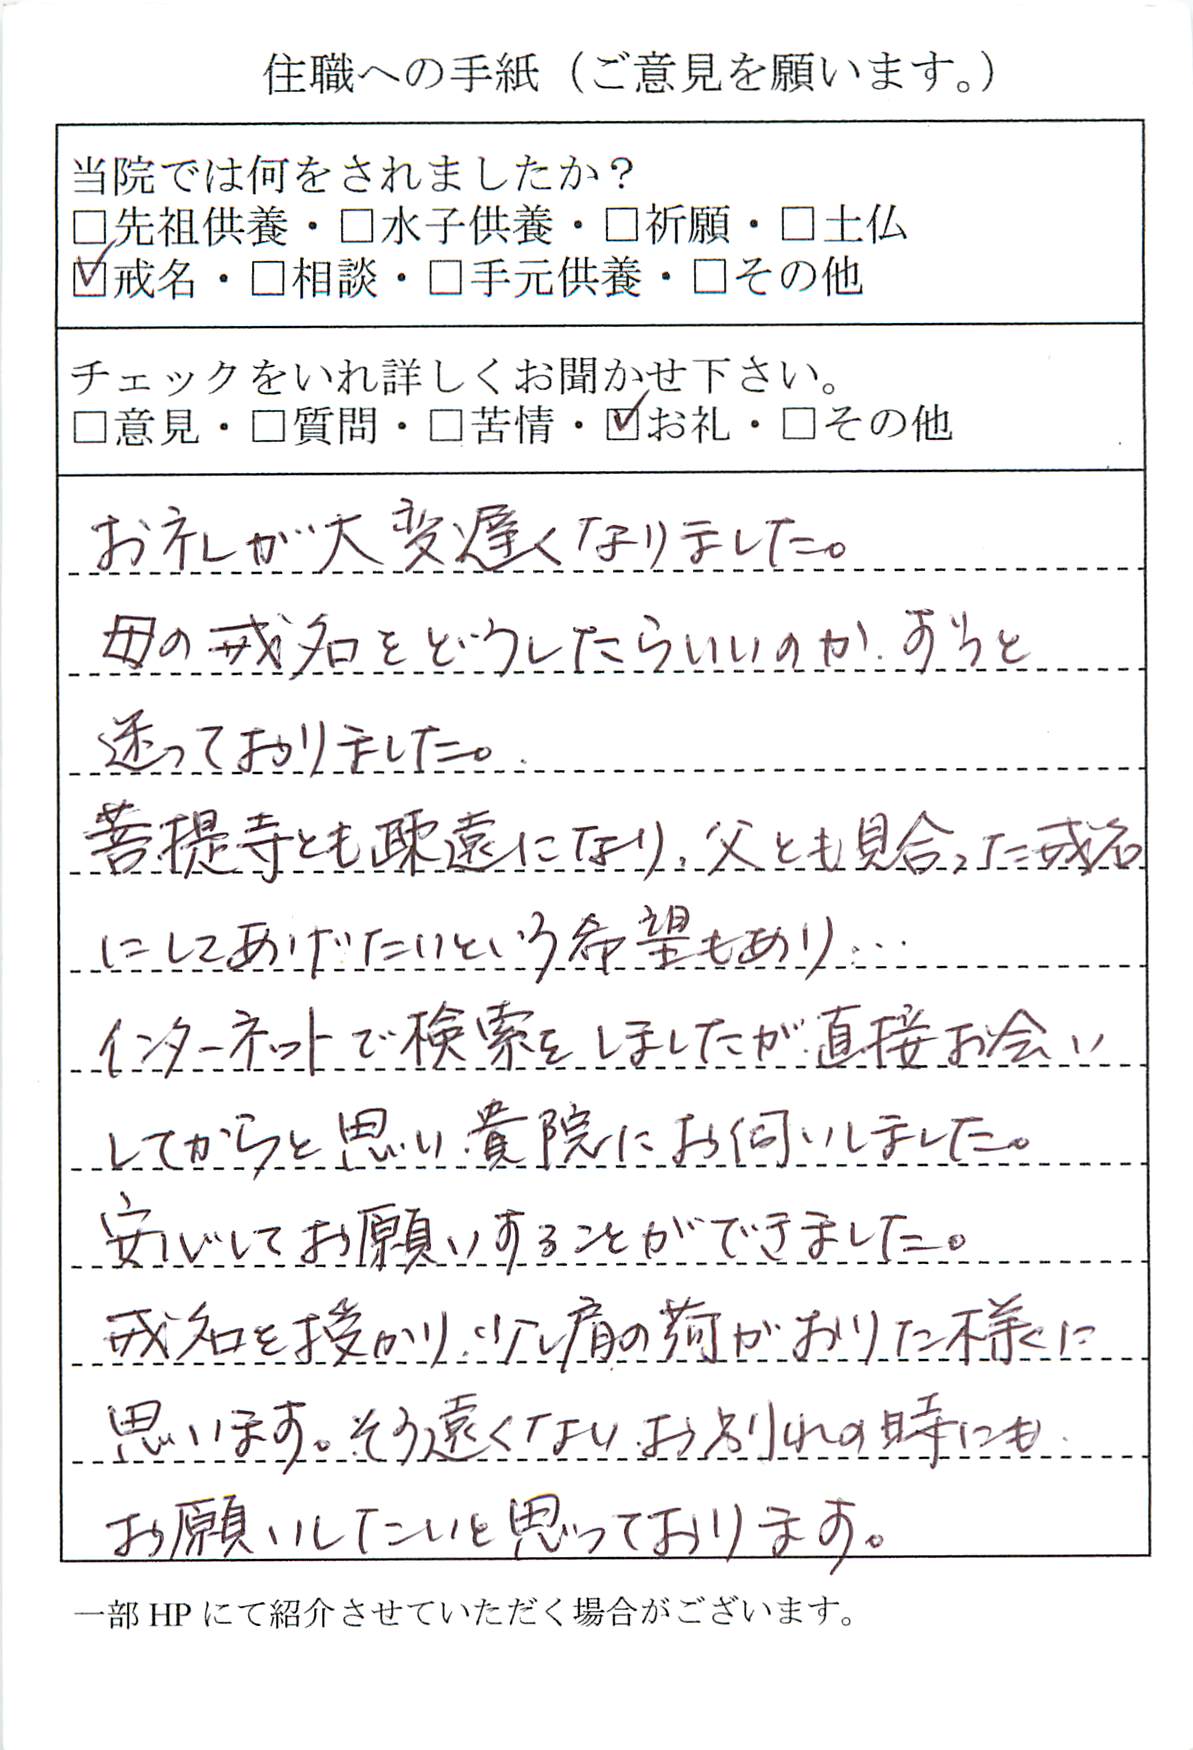 住職への手紙（ご意見を願います。）
当院では何をされましたか？
□先祖供養・□水子供養・□祈願・□土仏
☑戒名・□相談・□手元供養・□その他
チェックをいれ詳しくお聞かせ下さい。
□意見・□質問・□苦情・☑お礼・□その他
お礼が大変遅くなりました。
母の戒名をどうしたらいいのか、ずっと
迷っておりました。
菩提寺とも疎遠になり、父とも見合った戒名
にしてあげたいという希望もあり…
インターネットで検索をしましたが、直接お会い
してからと思い貴院にお伺いしました。
安心してお願いすることができました。
戒名を授かり、少し肩の荷がおりた様に
思います。そう遠くないお別れの時にも
お願いしたいと思っております。
一部 HP にて紹介させていただく場合がございます。